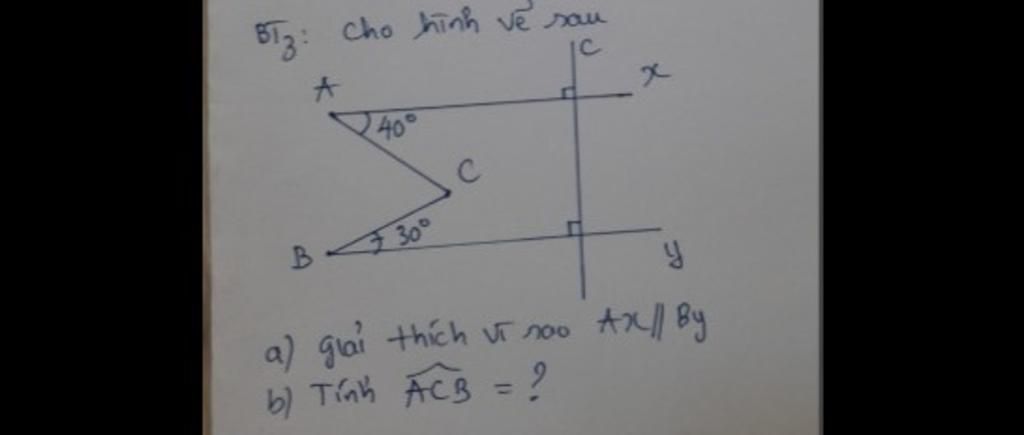 BT3: Cho hình vẽ sau
C
A
x
40°
C
30°
B
y
a) giải thích vì sao Ax // By
b) Tính ACB = ?